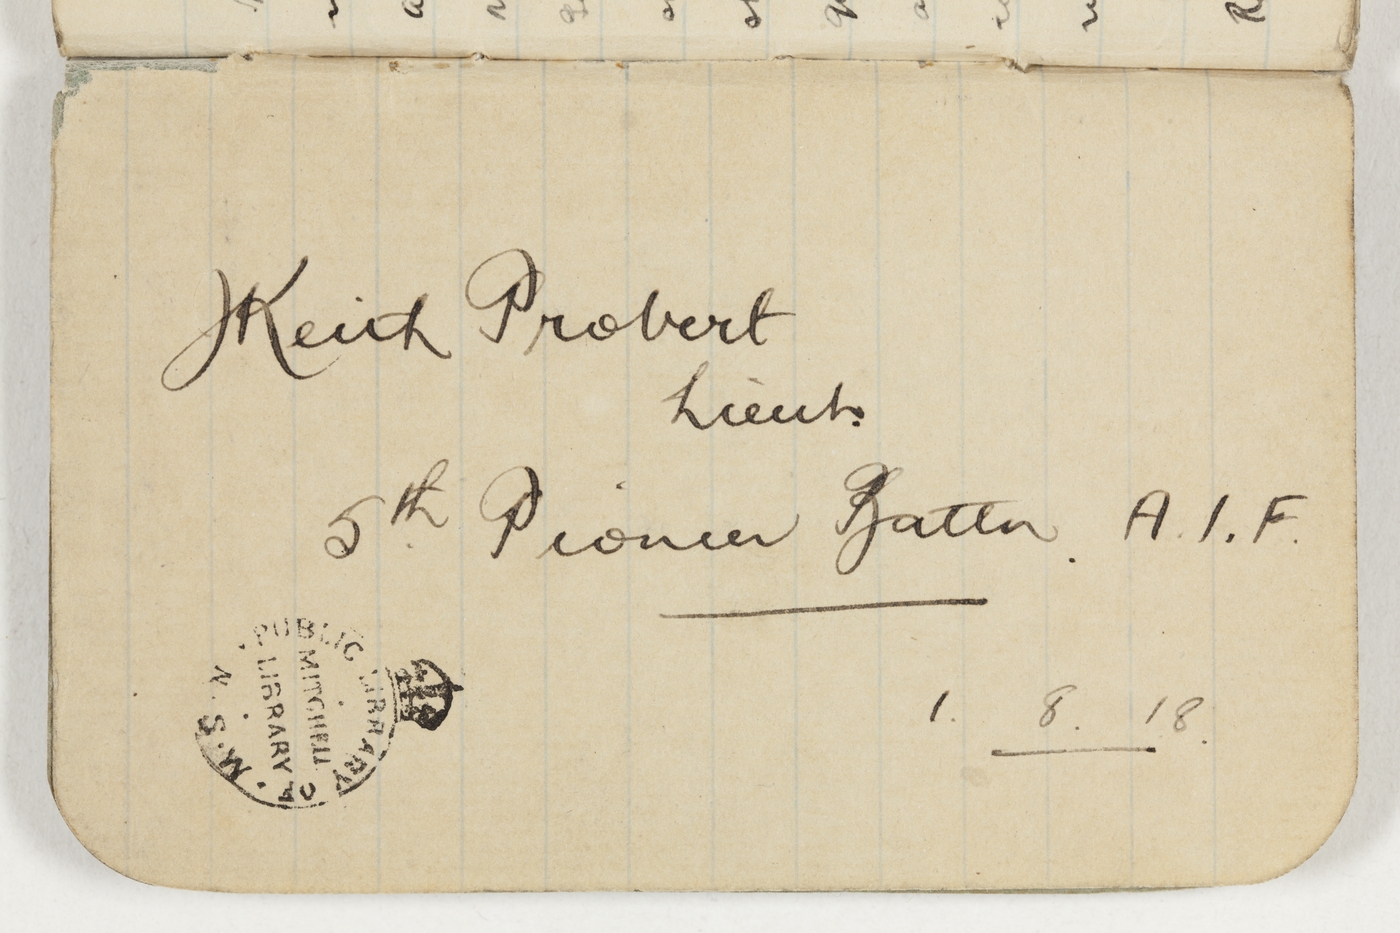 Keith Probert
Lieut.
5th Pioneer Battn. A.I.F.
1. 8. 18.
PUBLIC LIBRARY OF N.S.W.
MITCHELL
LIBRARY